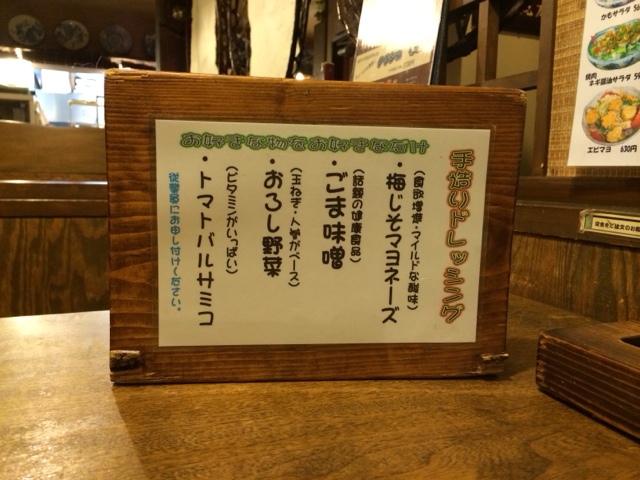 お好きな物をお好きなだけ
手造りドレッシング
(食欲増進・マイルドな酸味)
・梅じそマヨネーズ
(話題の健康食品)
・ごま味噌
(玉ねぎ・人参がベース)
・おろし野菜
(ビタミンがいっぱい)
・トマトバルサミコ
従業員にお申し付けください。
かもサラダ
焼肉
ネギ醤油サラダ
エビマヨ 630円